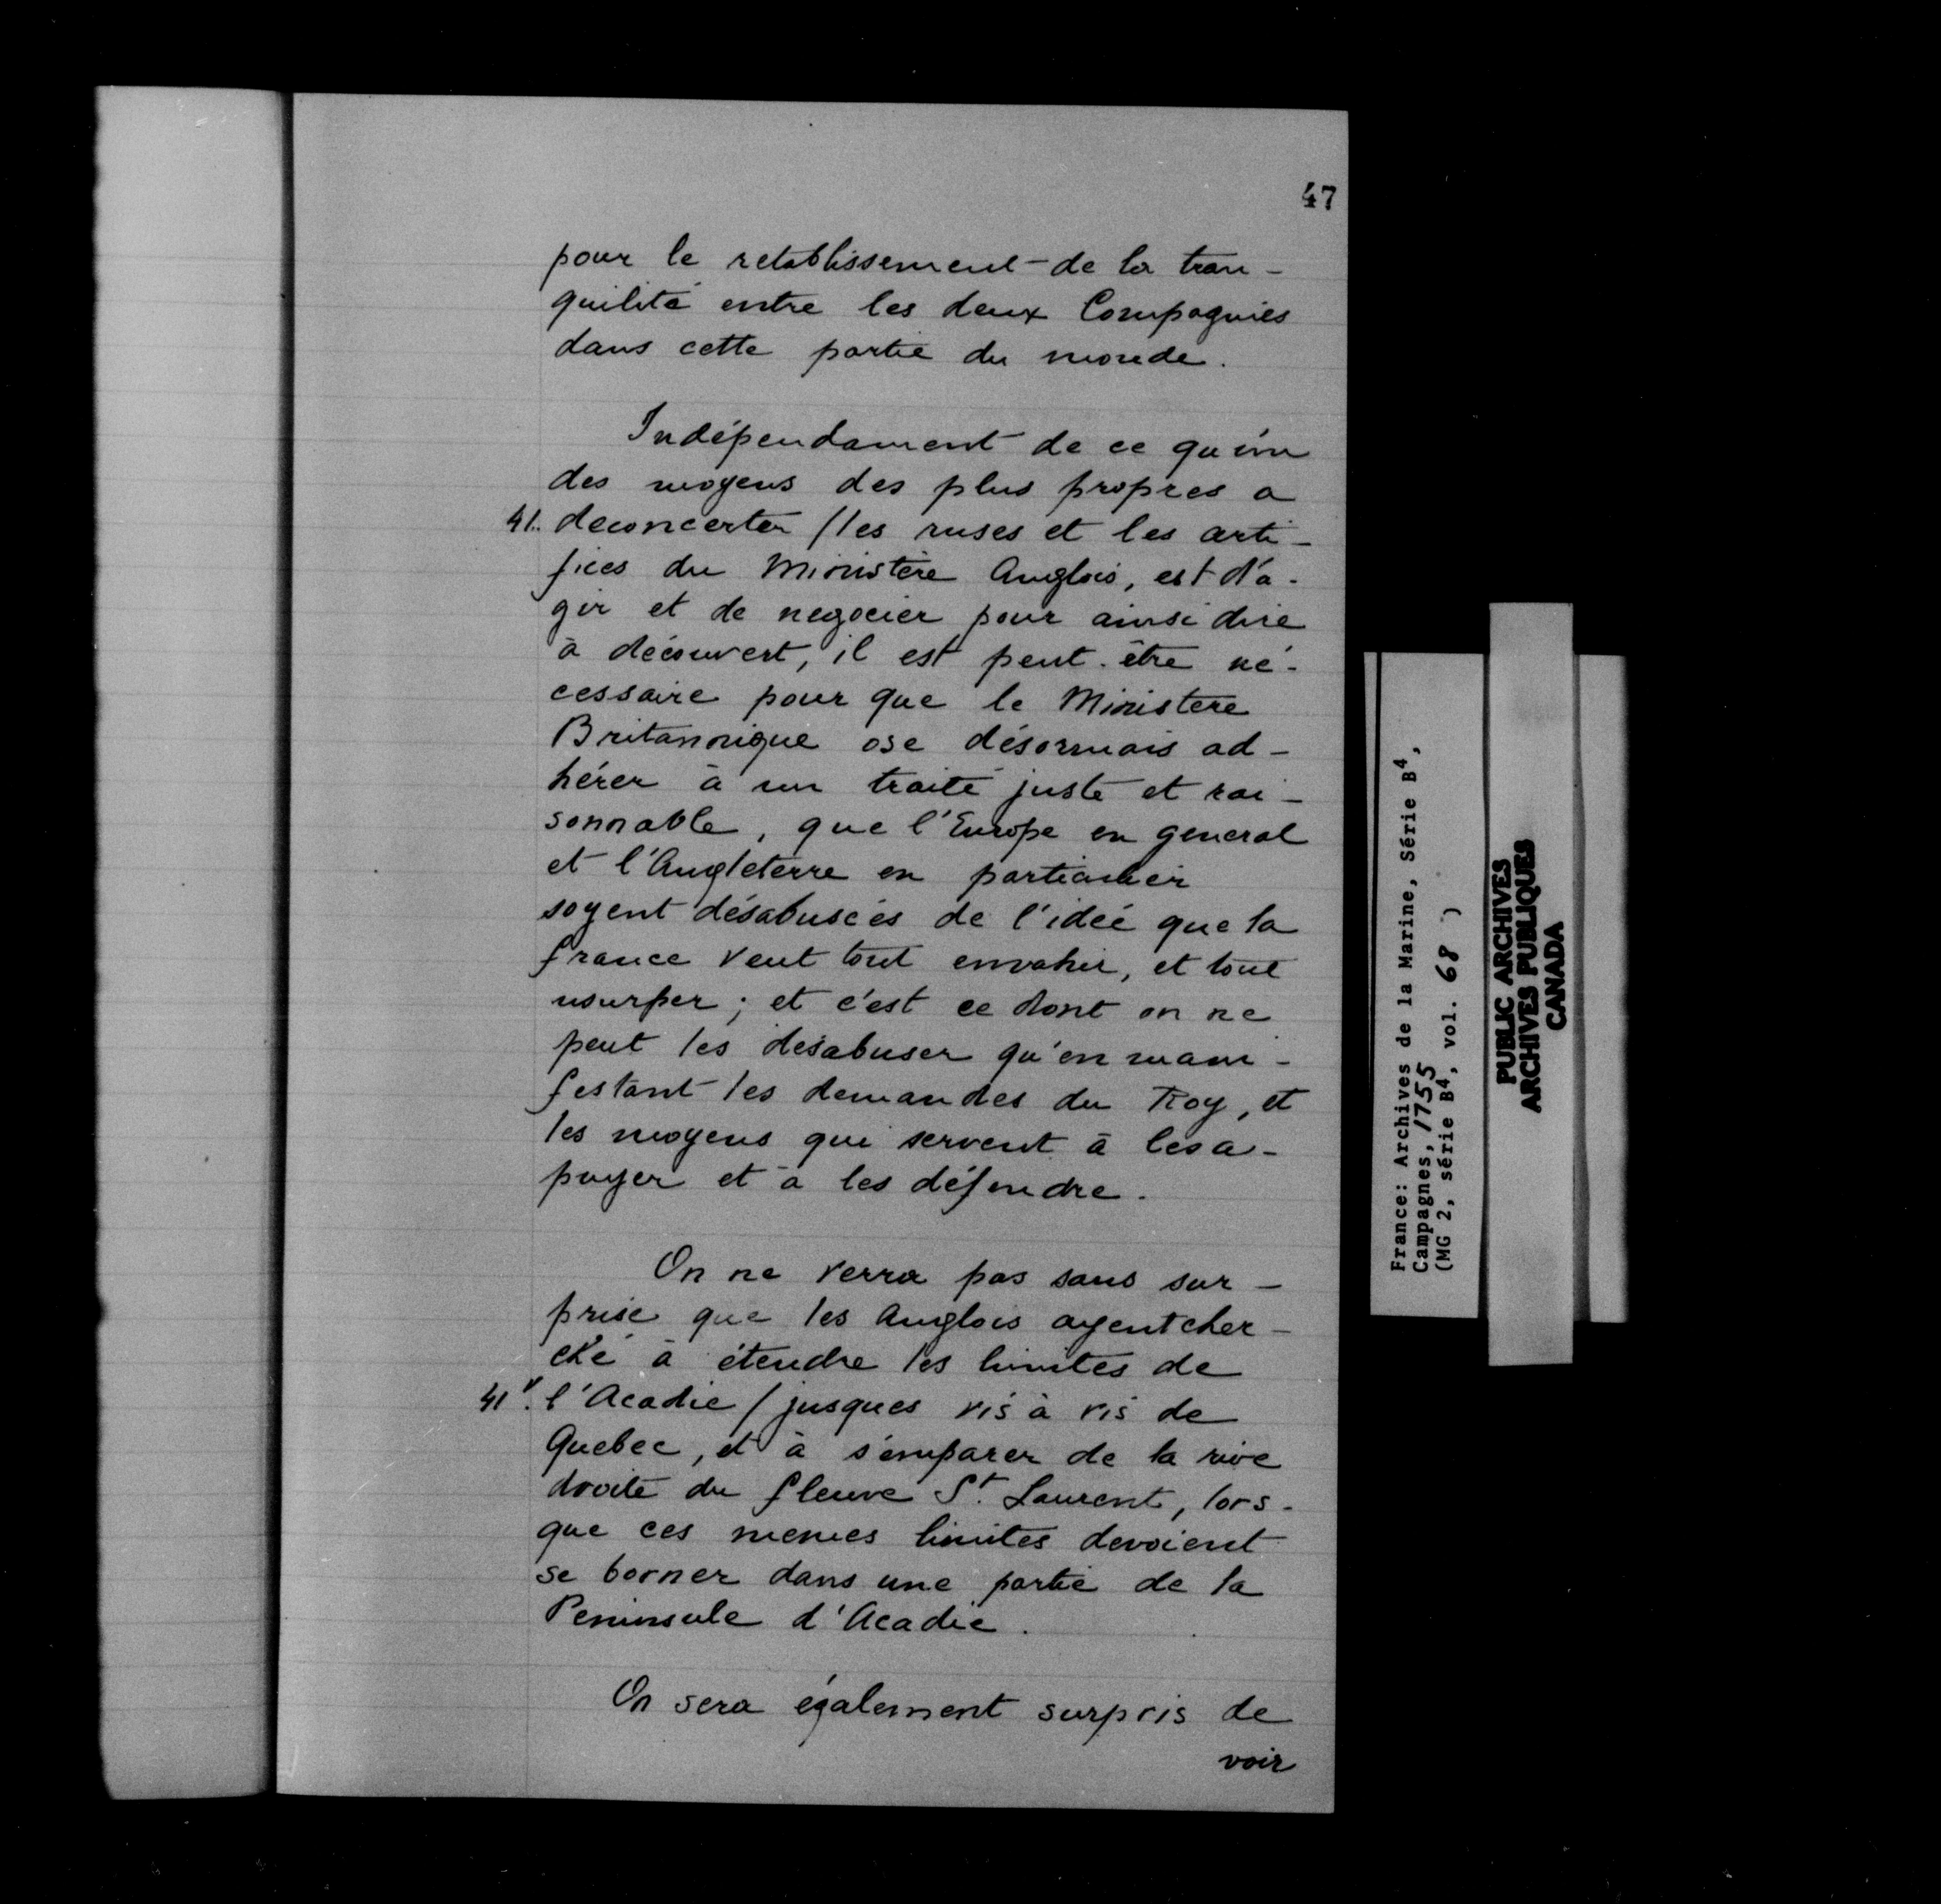 47
pour le retablissement de la tran-
quilité entre les deux Compagnies
dans cette partie du monde.
Indépendament de ce qu'un
des moyens des plus propres a
41. deconcerter / les ruses et les arti-
fices du Ministère Anglois, est d'a-
gir et de negocier pour ainsi dire
à découvert, il est peut-être né-
cessaire pour que le Ministere
Britannique ose désormais ad-
hérer à un traité juste et rai-
sonnable, que l'Europe en general
et l'Angleterre en particulier
soyent désabusées de l'idée que la
france veut tout envahir, et tout
usurper ; et c'est ce dont on ne
peut les désabuser qu'en mani-
festant les demandes du Roy, et
les moyens qui servent à les a-
puyer et à les défendre.
On ne verra pas sans sur-
prise que les Anglois ayent cher-
ché à étendre les limites de
41v. l'Acadie / jusques vis à vis de
Quebec, et à s'emparer de la rive
droite du fleuve St. Laurent, lors-
que ces memes limites devoient
se borner dans une partie de la
Peninsule d'Acadie.
On sera également surpris de
voir
France: Archives de la Marine, Série B4,
Campagnes, 1755
(MG 2, série B4, vol. 68 )
PUBLIC ARCHIVES
ARCHIVES PUBLIQUES
CANADA